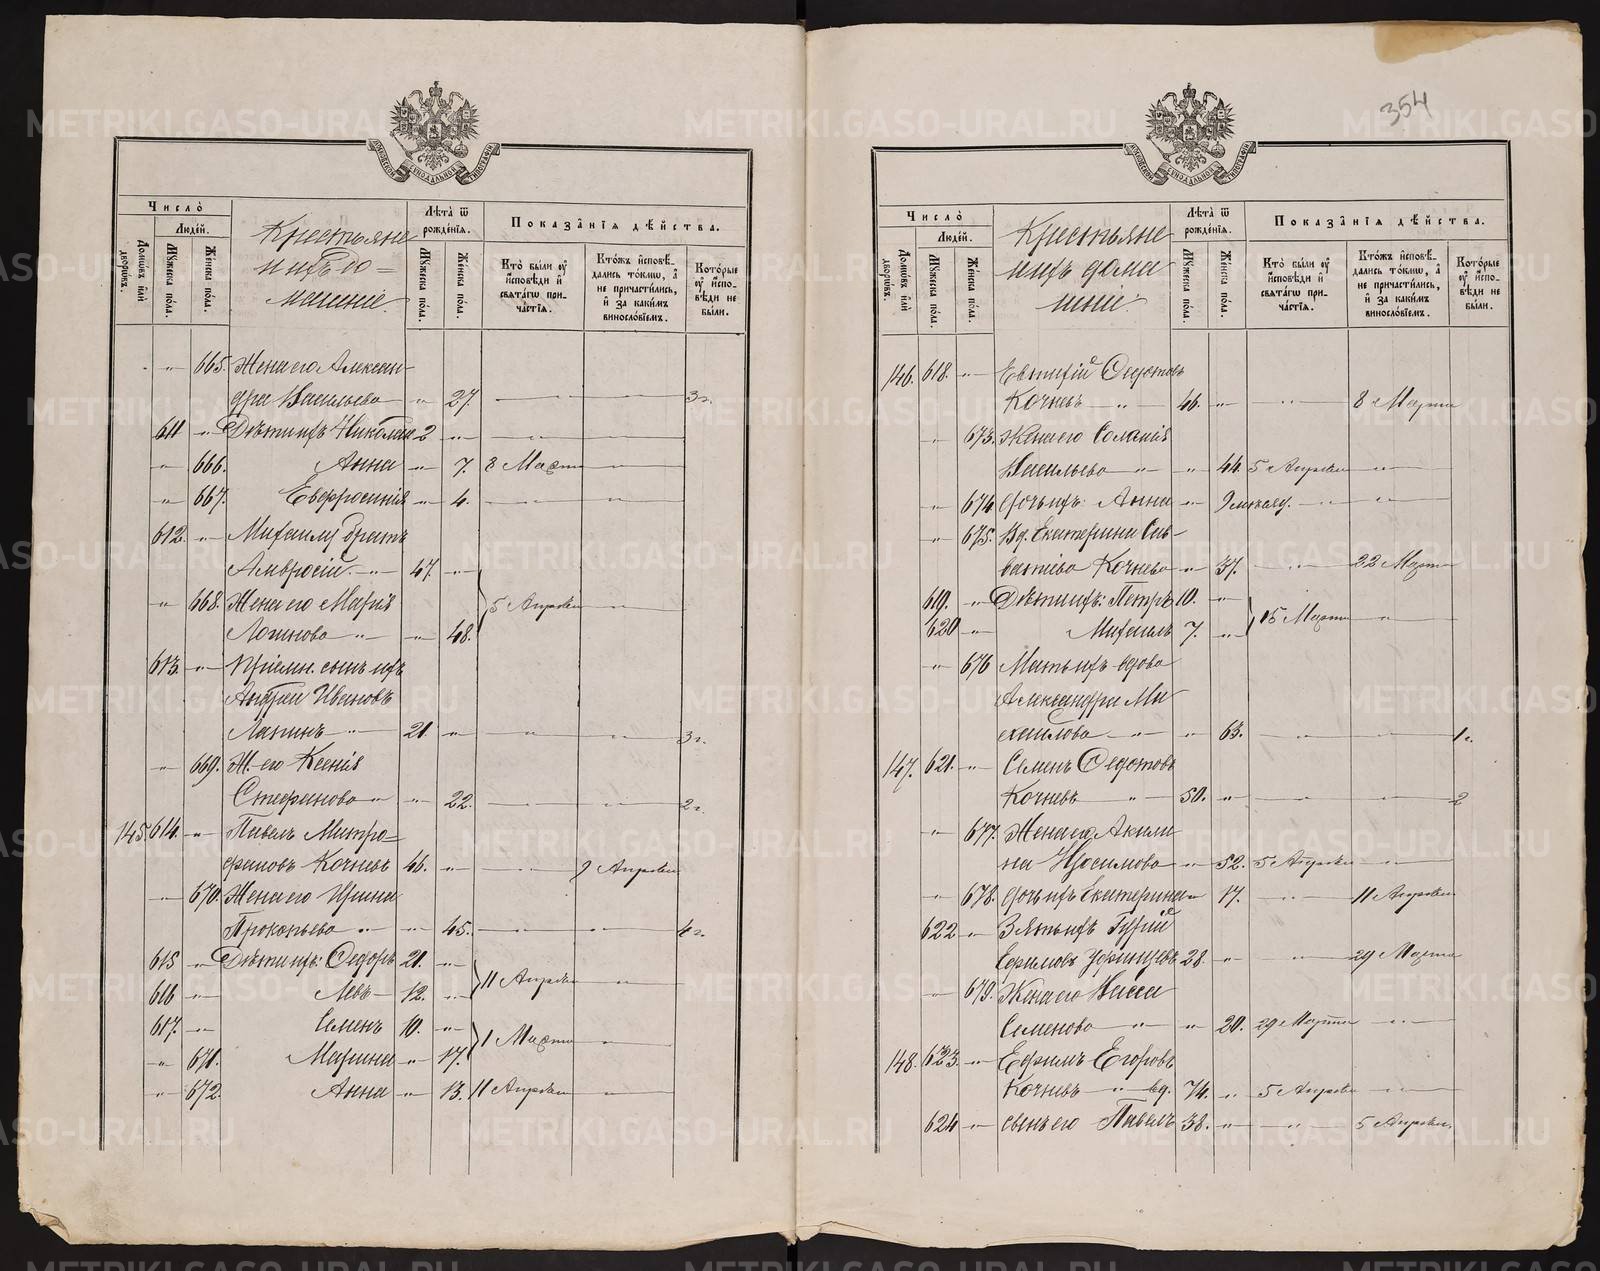 354
Число̀
Людей.
Домѡвъ или дворѡвъ.
Мꙋжеска пола.
Женска пола.
Крестьяне
и ихъ до=
машніе.
Лѣта̀ ѿ рожде́нїѧ.
Мꙋжеска пола.
Женска пола.
Показа̑нїѧ дѣ́йства.
Кто̀ были ᲂу҆ и҆сповѣди и҆ свѧтагѡ причастїѧ.
Кто́жъ и҆сповѣдались то́кмѡ, а҆ не причасти́лись, и҆ за каки́мъ винослові́емъ.
Кото́рые ᲂу҆ и҆сповѣди не были.
" 665. Жена его Алексан-
дра Васильева " 27. " " 3 г.
611 " Дѣти ихъ Николай 2 " " "
" 666. Анна " 7. 8 Марта "
" 667. Евфросинія " 4. " "
612. " Михаилу братъ
Амвросій " 47. "
" 668. Жена его Марія 5 Апрѣля "
Логинова " " 48.
613. " Пріемн. сынъ ихъ
Андрей Ивановъ
Лапинъ " 21 " " " 3 г.
" 669. Ж. его Ксенія
Стефанова " " 22. " " 2 г.
145. 614. " Павелъ Митро=
фановъ Кочневъ 46. " " 9 Апрѣля
" 670. Жена его Ирина
Прокопьева " " 45. " " 4 г.
615 " Дѣти ихъ: Ѳедоръ 21. "
616 " Левъ 12. " 11 Апрѣля "
617. " Семенъ 10. "
" 671. Марина " 17. 1 Марта "
" 672. Анна " 13. 11 Апрѣля "
Число̀
Людей.
Домѡвъ или дворѡвъ.
Мꙋжеска пола.
Женска пола.
Крестьяне
и ихъ дома
шніе.
Лѣта̀ ѿ рожде́нїѧ.
Мꙋжеска пола.
Женска пола.
Показа̑нїѧ дѣ́йства.
Кто̀ были ᲂу҆ и҆сповѣди и҆ свѧтагѡ причастїѧ.
Кто́жъ и҆сповѣдались то́кмѡ, а҆ не причасти́лись, и҆ за каки́мъ винослові́емъ.
Кото́рые ᲂу҆ и҆сповѣди не были.
146. 618. " Евтихій Ѳедотовъ
Кочневъ " 46. " " 8 Марта
" 673. Жена его Соломія
Васильева " " 44. 5 Апрѣля "
" 674 Дочь ихъ Анна " 9 месяц. " "
" 675. Вд. Екатерина Сав-
ватіева Кочнева " 37. " 22 Марта
619. " Дѣти ихъ: Петръ 10. "
620 " Михаилъ 7. " 15 Марта "
" 676 Мать ихъ вдова
Александра Ми
хаилова " " 63. " " 1 г.
147. 621. " Семенъ Ѳедотовъ
Кочневъ " 50. " " " 2
" 677. Жена его Акили
на Изосимова " 52. 5 Апрѣля "
" 678. Дочь ихъ Екатерина " 17. " 11 Апрѣля
622 " Зять ихъ Гурій
Ефимовъ 28. " " 29 Марта
" 679. Жена его Васса
Семенова " " 20. 29 Марта "
148. 623. " Ефимъ Егоровъ
Кочневъ " вд. 74. " 5 Апрѣля "
624 " Сынъ его Павелъ 38. " " 5 Апрѣля.
METRIKI.GASO-URAL.RU